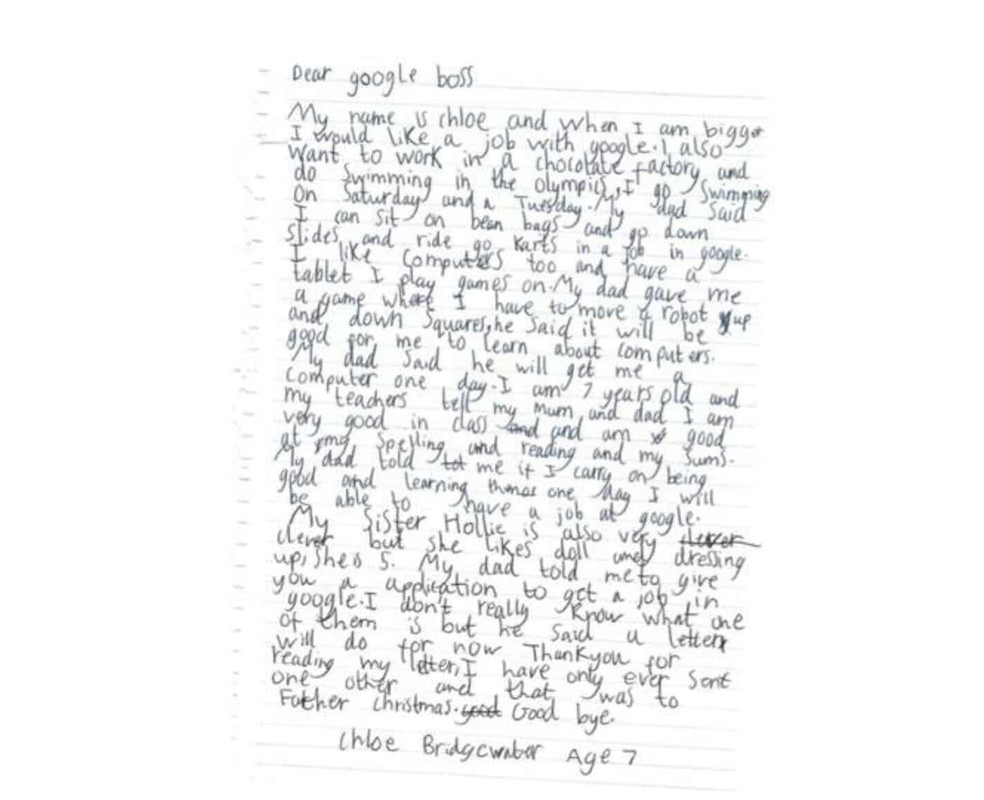 Dear google boss
My name is chloe and when I am bigger
I would like a job with google. I also
want to work in a chocolate factory and
do swimming in the olympics, I go swimming
on Saturday and a Tuesday. My dad said
I can sit on bean bags and go down
slides and ride go karts in a job in google.
I like computers too and have a
tablet I play games on. My dad gave me
a game where I have to move a robot up
and down squares, he said it will be
good for me to learn about computers.
My dad said he will get me a
computer one day. I am 7 years old and
my teachers tell my mum and dad I am
very good in class and and am good
at my spelling and reading and my sums.
My dad told tot me if I carry on being
good and learning things one day I will
be able to have a job at google.
My sister Hollie is also very clever
clever but she likes doll and dressing
up, she is 5. My dad told me to give
you a application to get a job in
google. I don't really know what one
of them is but he said a letter
will do for now Thankyou for
reading my letter, I have only ever sent
one other and that was to
Father christmas. good Good bye.
Chloe Bridgewater Age 7